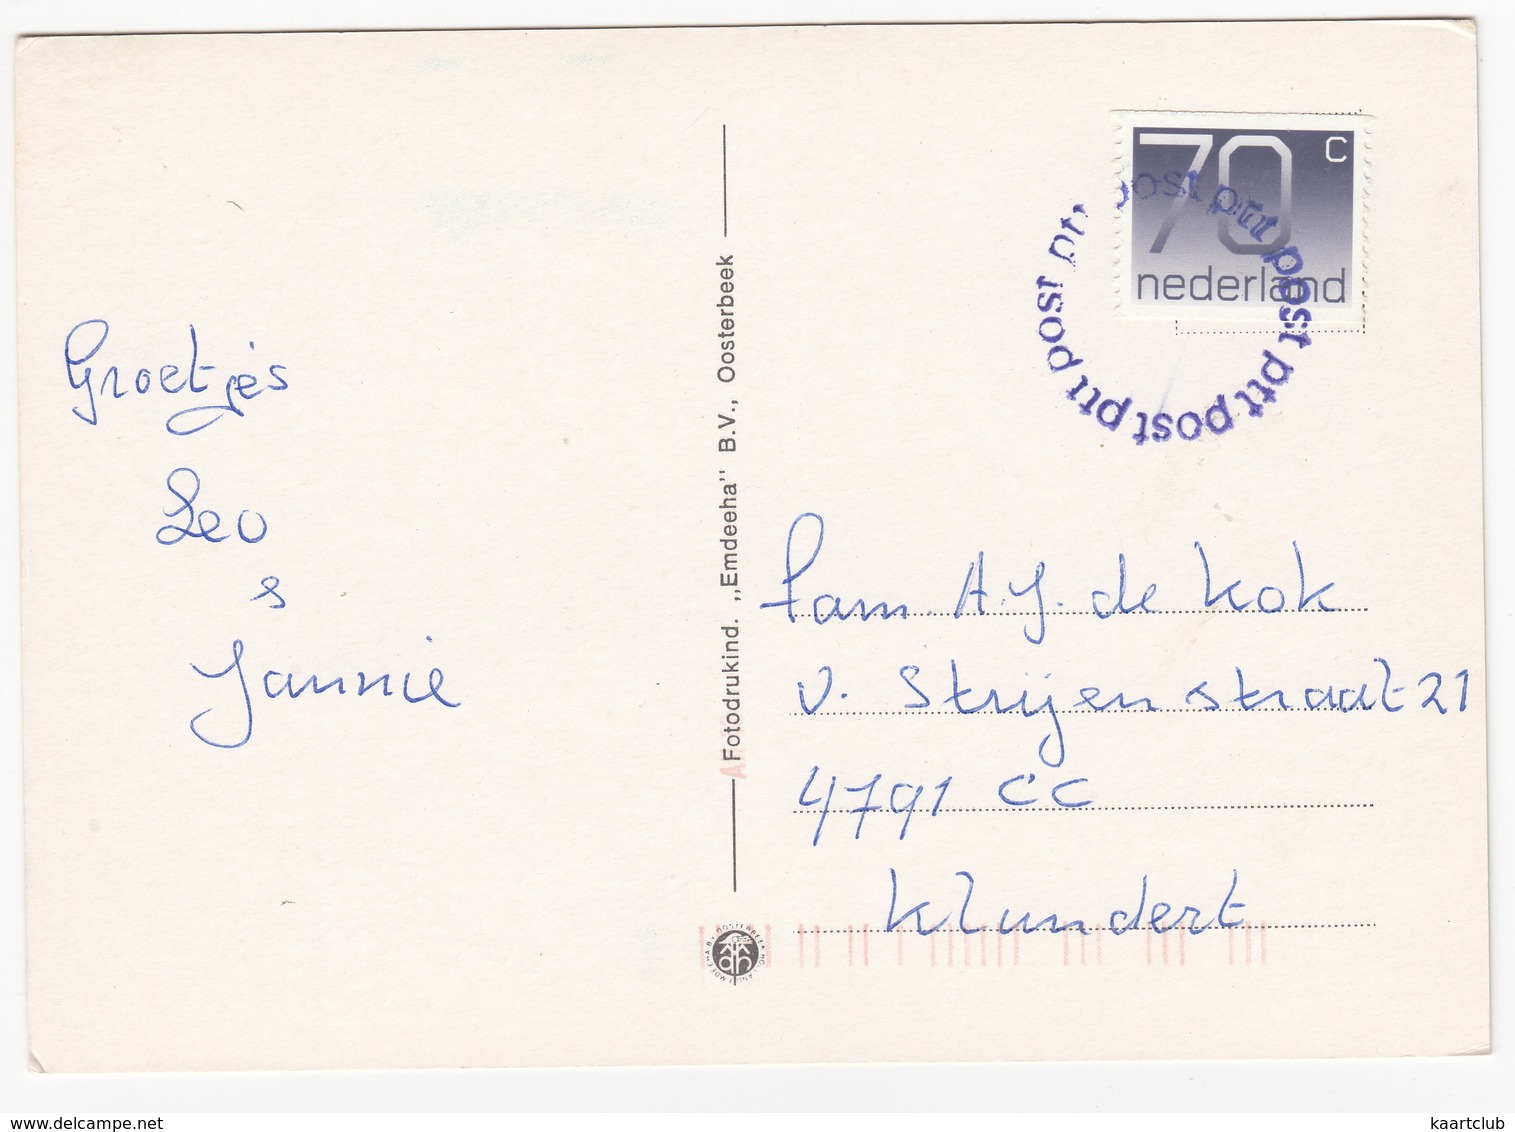 Groetjes
Leo
&
Jannie
Fotodrukind. ,,Emdeeha'' B.V., Oosterbeek
70 c
nederland
post ptt post ptt post ptt post ptt post ptt
Fam. A.J. de Kok
v. Strijenstraat 21
4791 CC
Klundert
delcampe.net
kaartclub